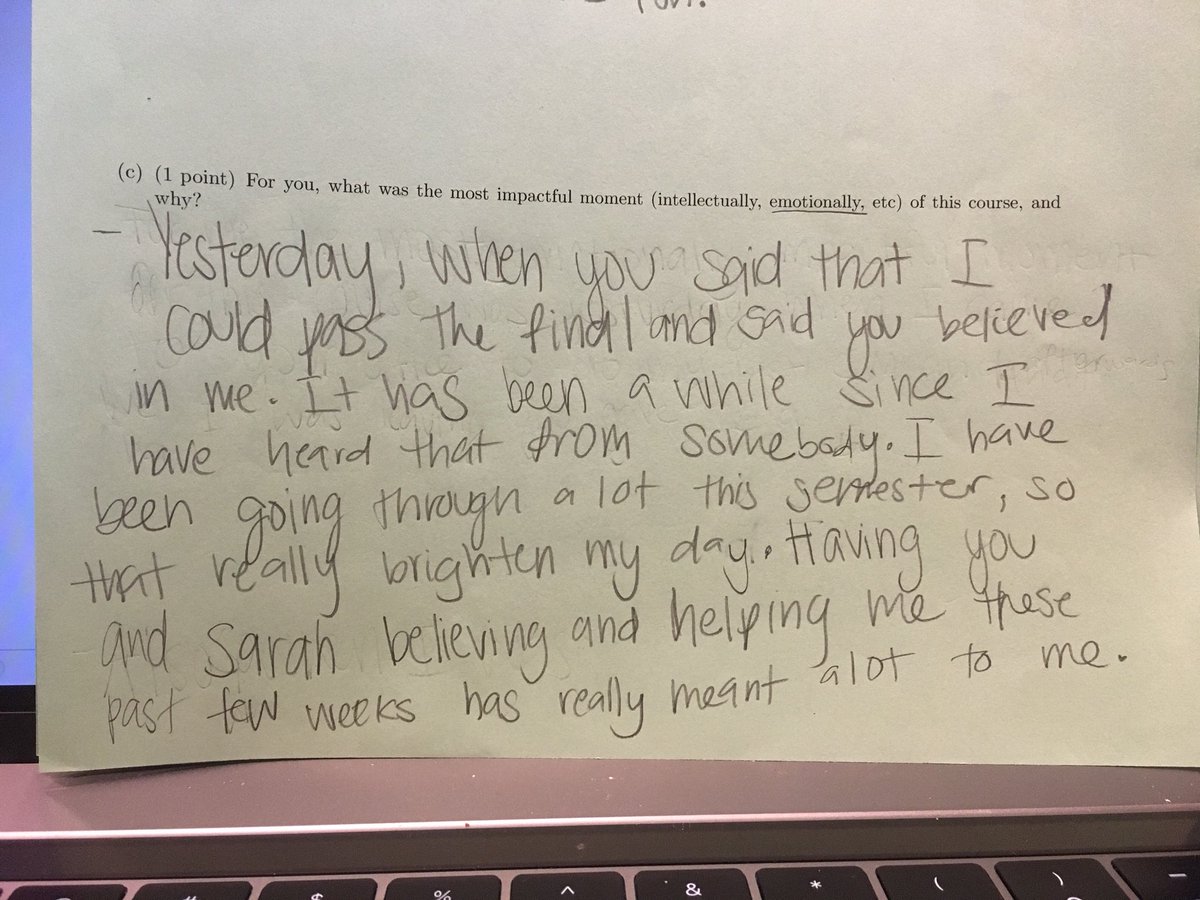 (c) (1 point) For you, what was the most impactful moment (intellectually, emotionally, etc) of this course, and
why?
- Yesterday, when you said that I
could pass the final and said you believed
in me. It has been a while since I
have heard that from somebody. I have
been going through a lot this semester, so
that really brighten my day. Having you
and Sarah believing and helping me these
past few weeks has really meant alot to me.
$
%
^
&
*
(
)